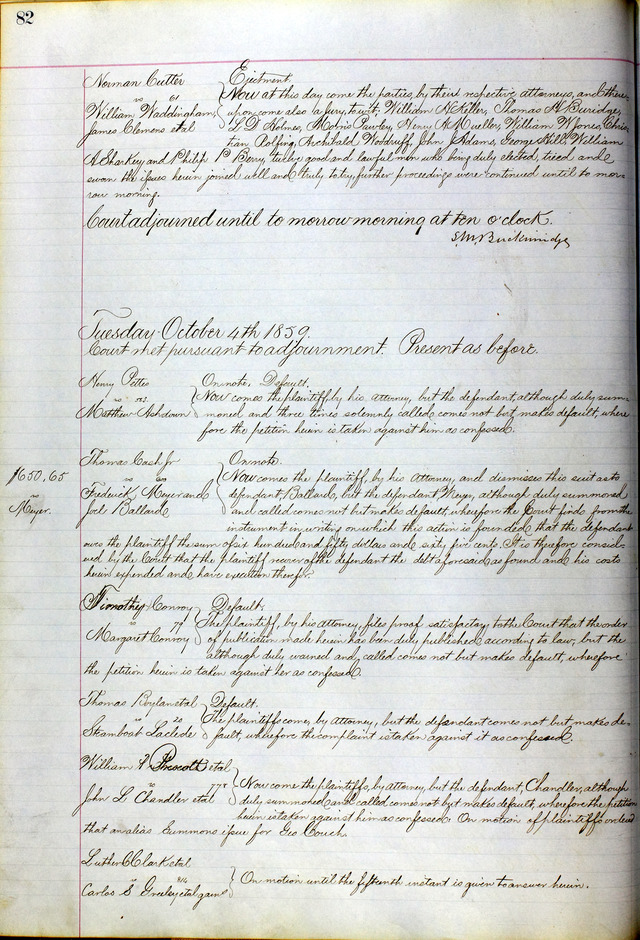 82
Norman Cutter
vs 61
William Waddingham,
James Clemens etal
Ejectment.
Now at this day come the parties, by their respective attorneys, and there-
upon come also a jury, to wit: William H Keller, Thomas H Burridge,
L D Holmes, Morris Pawley, Henry A Mueller, William W Jones, Chris-
tian Rolfing, Archibald Woodruff, John Adams, George Hill, William
A Sharkey and Philip P Berry, twelve good and lawful men who being duly elected, tried and
sworn the issues herein joined well and truly to try, further proceedings were continued until to mor-
row morning.
Court adjourned until to morrow morning at ten o'clock.
S.M. Breckinridge
Tuesday October 4th 1859.
Court met pursuant to adjournment. Present as before.
Henry Pettes
vs
Matthew Ashdown
On note, Default.
Now comes the plaintiff, by his attorney, but the defendant, although duly sum-
moned and three times solemnly called comes not but makes default, where
fore the petition herein is taken against him as confessed.
$650,65
vs
Meyer.
Thomas Cash Jr
vs
Federick Meyer and
Joel Ballard
On note.
Now comes the plaintiff, by his Attorney, and dismisses this suit as to
defendant Ballard, but the defendant Meyer, although duly summoned
and called comes not but makes default, wherefore the Court finds from the
instrument in writing on which this action is founded, that the defendant
owes the plaintiff the sum of six hundred and fifty dollars and sixty five cents. It is therefore consid-
ered by the Court that the plaintiff recover of the defendant the debt aforesaid as found and his costs
herein expended and have execution therefor.
Timothy Conroy
vs 77
Margaret Conroy
Default.
The plaintiff, by his attorney, files proof satisfactory to the Court that the order
of publication made herein has been duly published according to law, but the
although duly warned and called comes not but makes default, wherefore
the petition herein is taken against her as confessed.
Thomas Boylan etal
vs 20
Steamboat Laclede
Default.
The plaintiffs comes, by attorney, but the defendant comes not but makes de-
fault, wherefore the complaint is taken against it as confessed.
William P Prescott etal
vs 778
John L Chandler etal
Now come the plaintiffs, by attorney, but the defendant, Chandler, although
duly summoned and called comes not but makes default, wherefore the petition
herein is taken against him as confessed. On motion of plaintiffs ordered
that an alias Summons issue for Geo Couch.
Luther C Clark etal
vs 816
Carlos S Greeley etal garn
On motion until the fifteenth instant is given to answer herein.